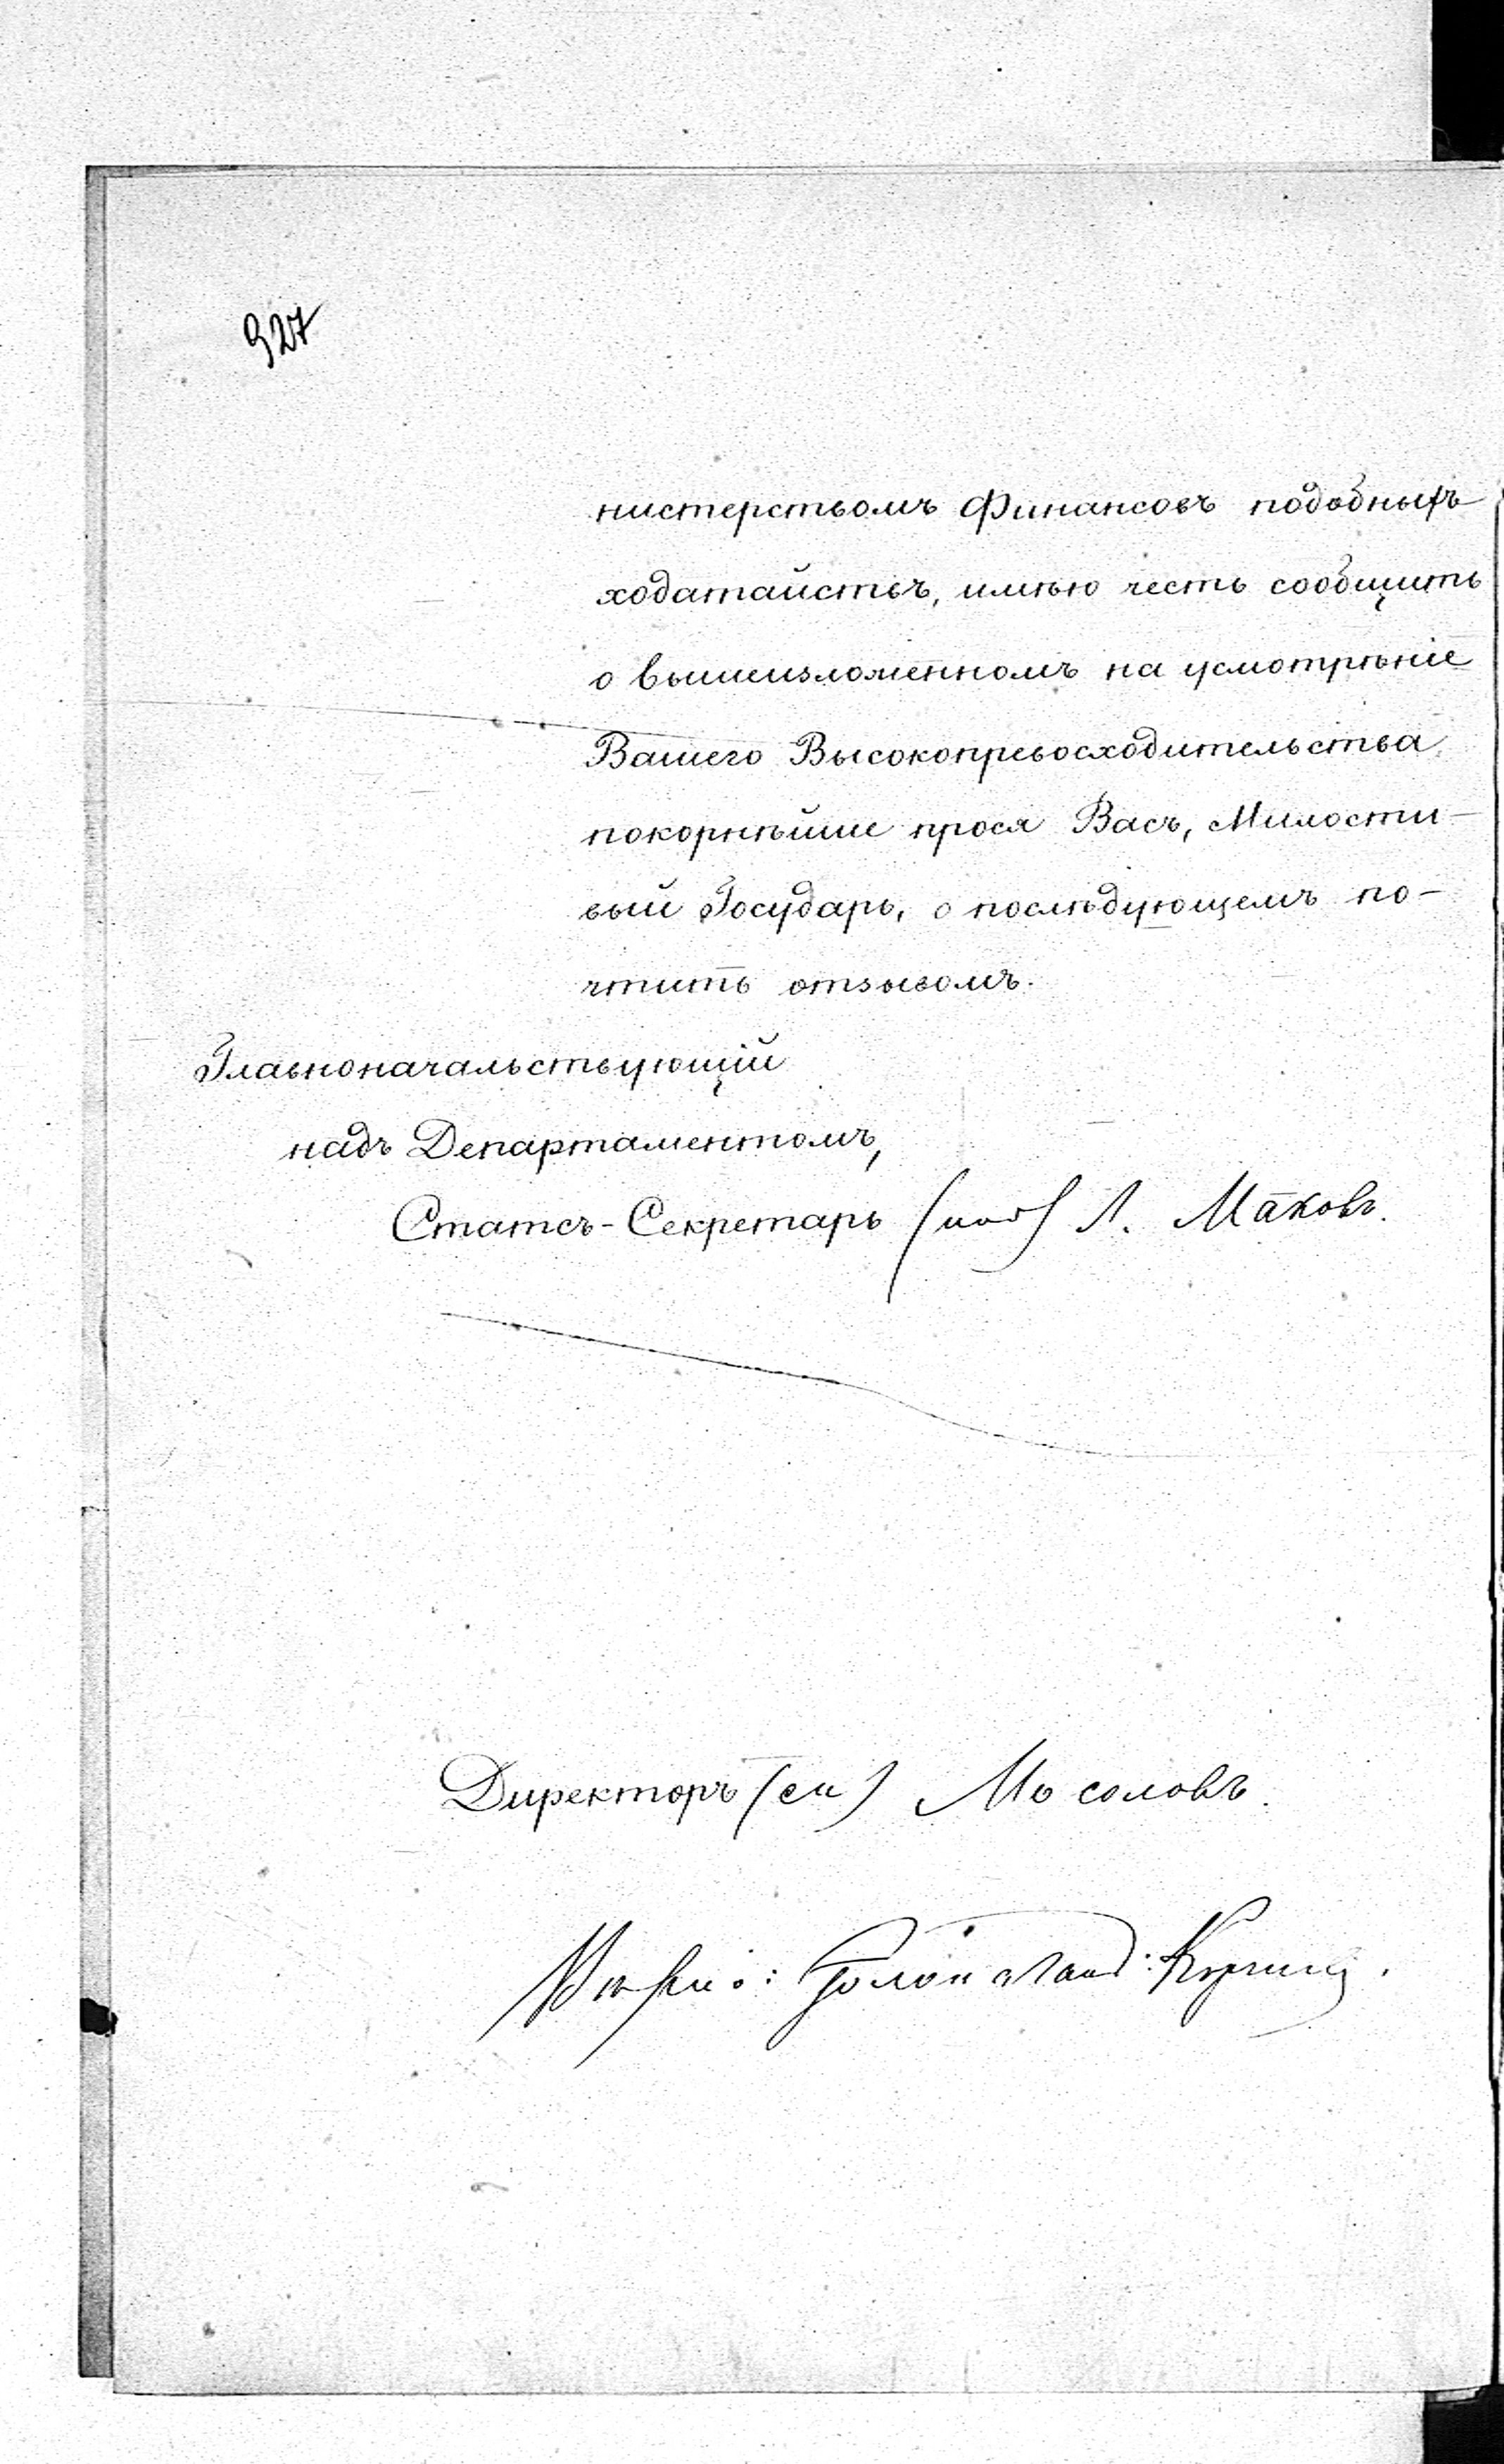 327
нистерствомъ Финансовъ подобныхъ
ходатайствъ, имѣю честь сообщить
о вышеизложенномъ на усмотрѣніе
Вашего Высокопревосходительства,
покорнѣйше прося Васъ, Милости-
вый Государь, о послѣдующемъ по-
чтить отзывомъ.
Главноначальствующій
надъ Департаментомъ,
Статсъ-Секретарь (под) Л. Маковъ.
Директоръ (ск) Мосоловъ.
Вѣрно: